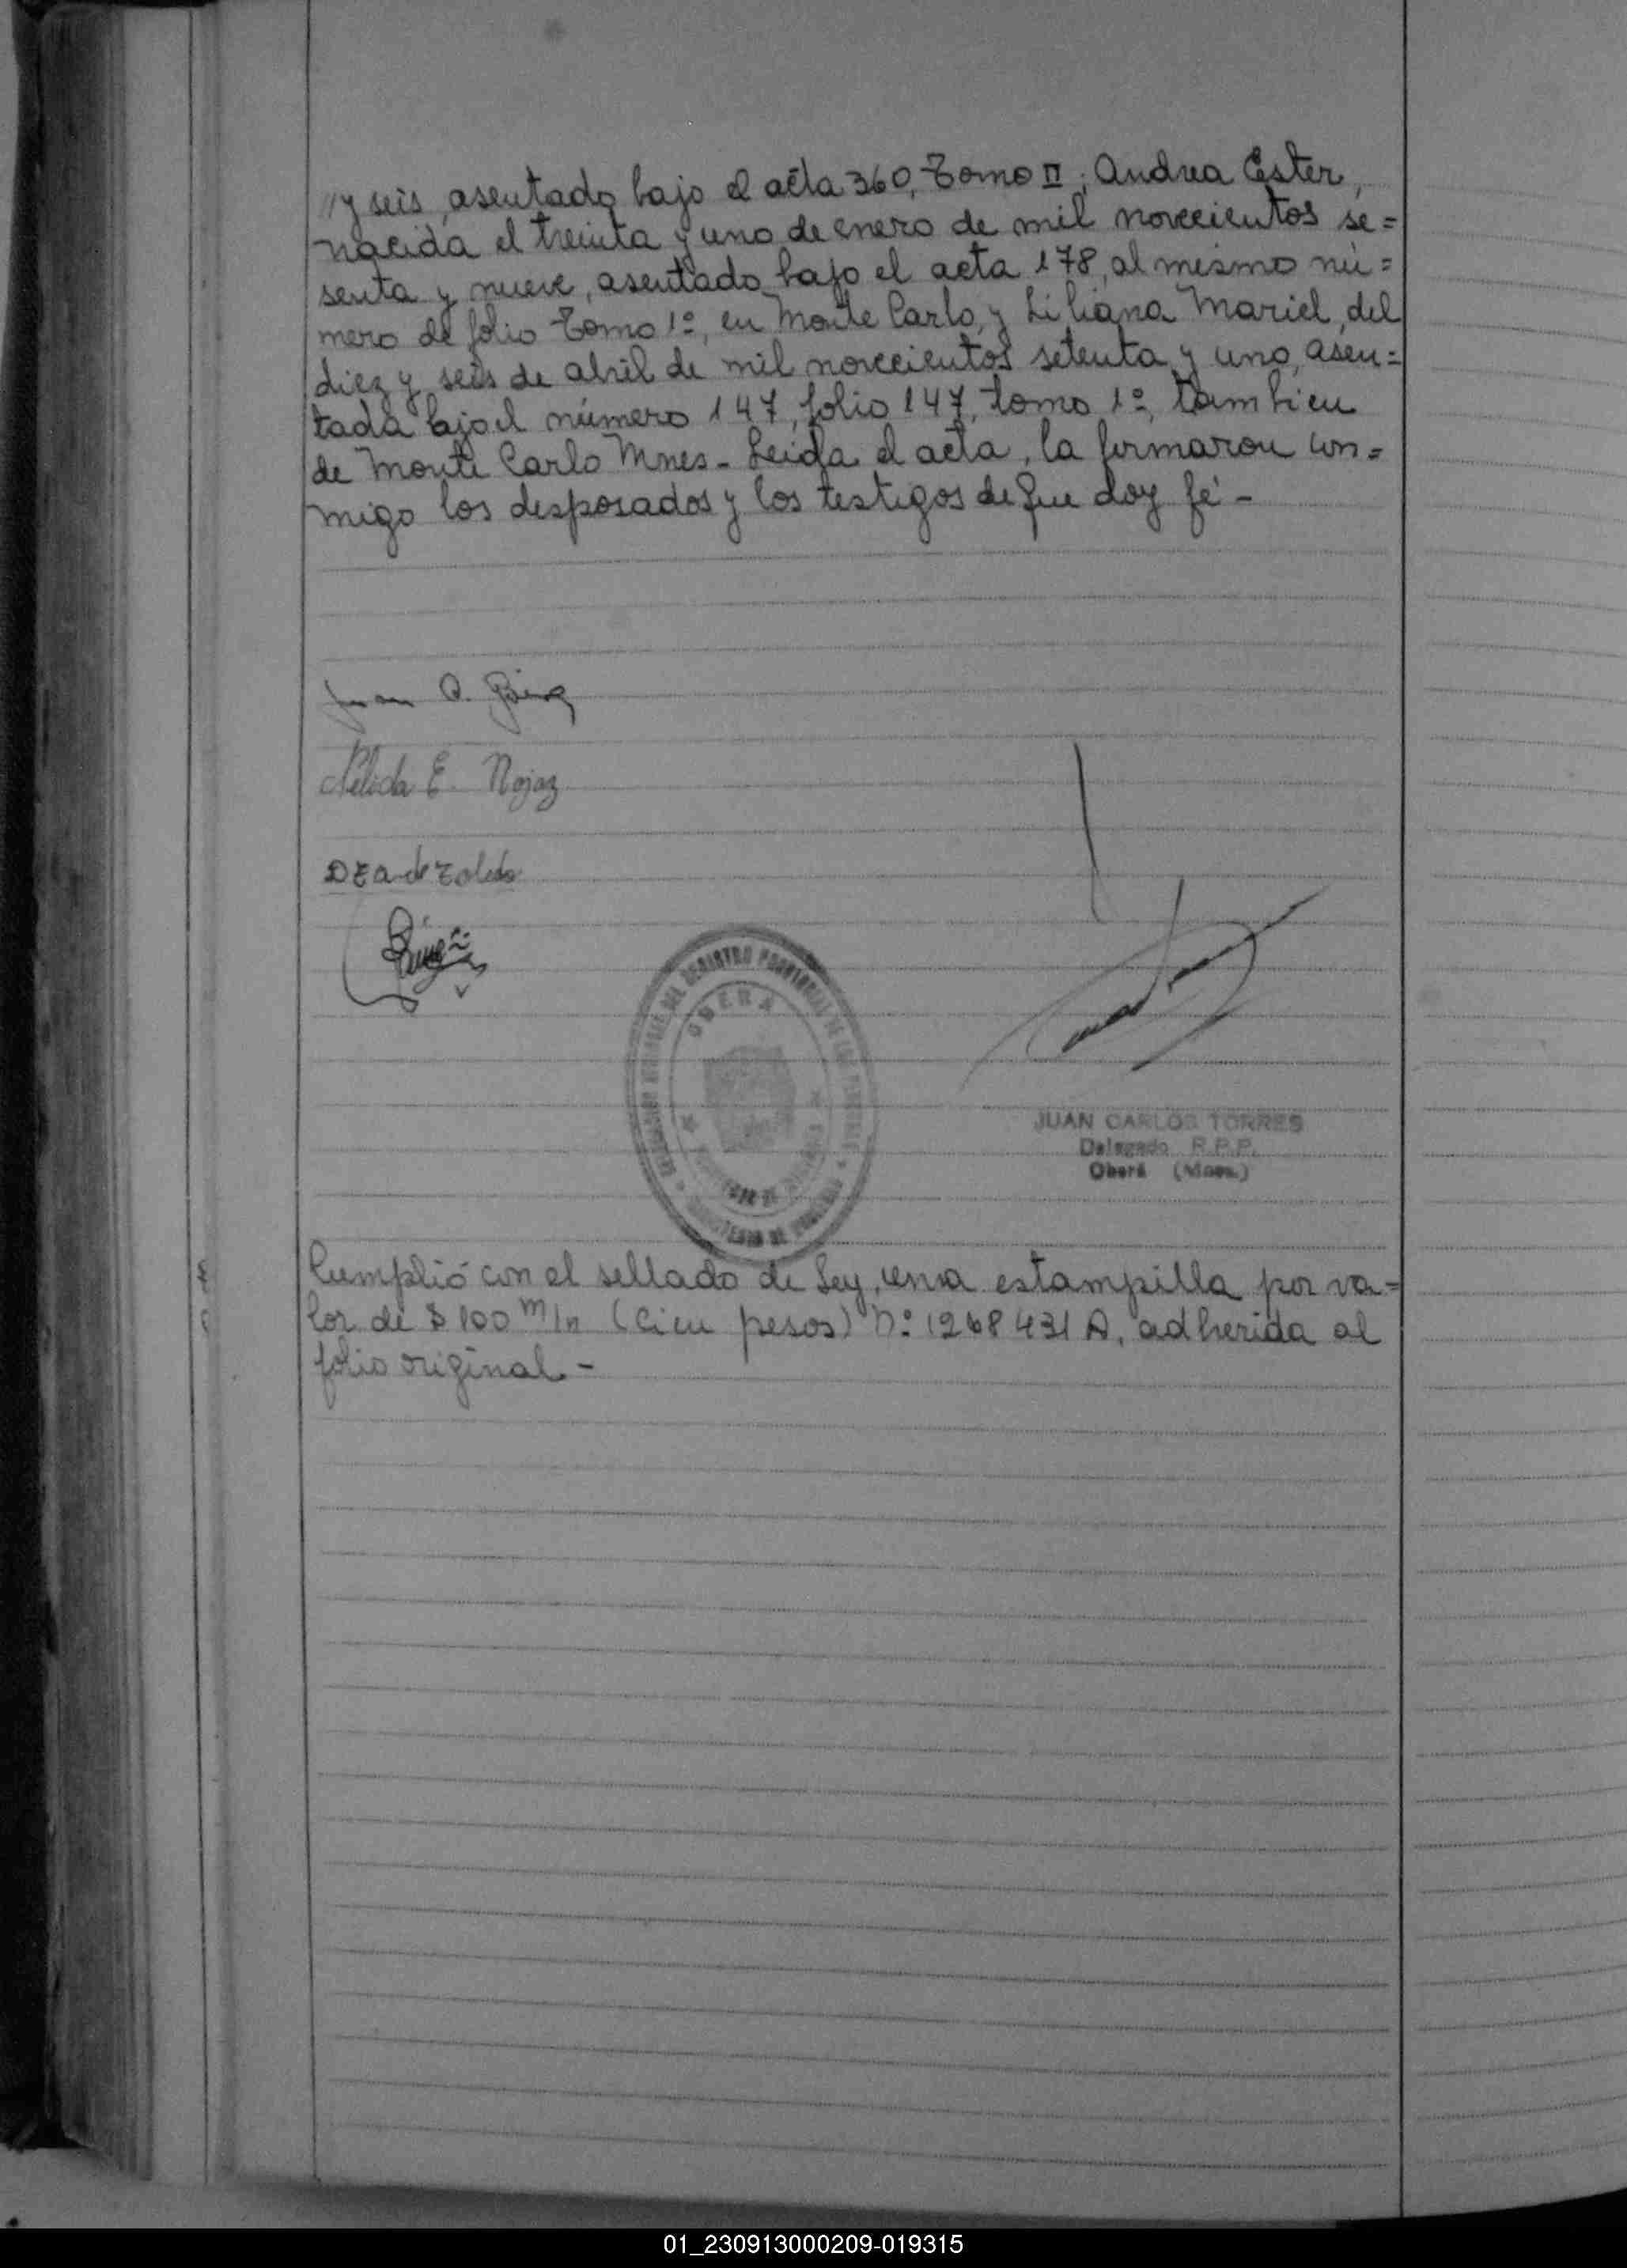 //y seis, asentado bajo el acta 360, Tomo II; Andrea Ester,
nacida el treinta y uno de enero de mil novecientos se=
senta y nueve, asentado bajo el acta 178, al mismo nú=
mero de folio Tomo 1º, en Monte Carlo, y Liliana Mariel, del
diez y seis de abril de mil novecientos setenta y uno, asen=
tada bajo el número 147, folio 147, tomo 1º, tambien
de Monte Carlo Mnes - Leida el acta, la firmaron con=
migo los desposados y los testigos de que doy fé -
Juan
Nélida E. Rojaz
de Toledo
OBERA
JUAN CARLOS TORRES
Delegado R.P.P.
Oberá (Mnes.)
Cumplió con el sellado de Ley, una estampilla por va=
lor de $ 100 m/n (Cien pesos) Nº 1268431 A, adherida al
folio original -
01_230913000209-019315